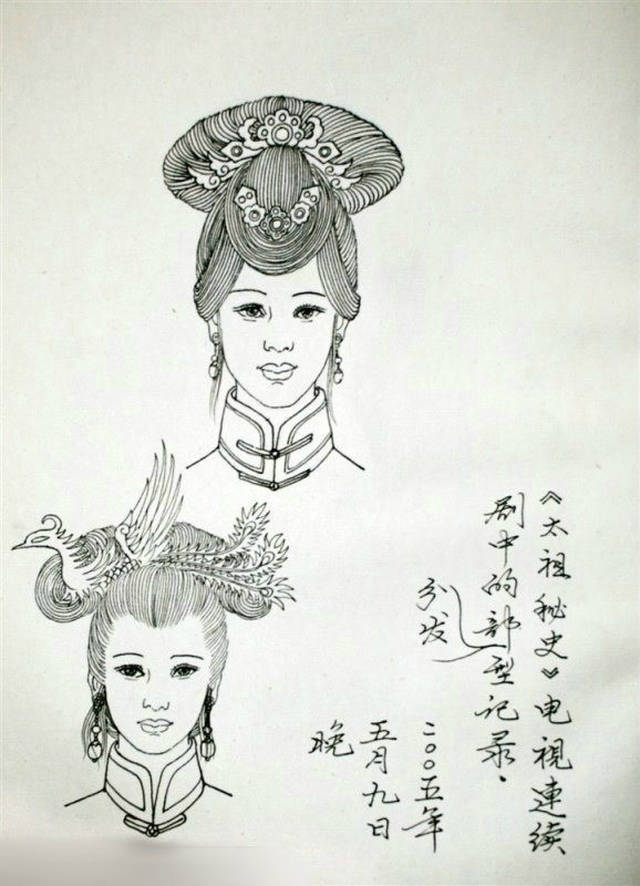 《太祖秘史》电視連续
剧中的部型记录.
分发
二〇〇五年
五月九日
晚